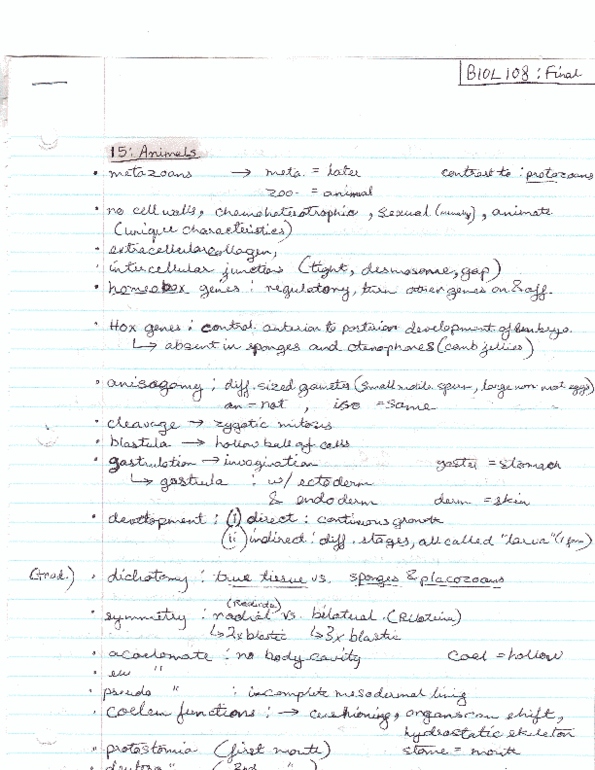 BIOL 108 : Final
15: Animals
• metazoans → meta. = later contrast to : protozoans
zoo- = animal
• no cell walls, chemoheterotrophic, sexual (mainly), animate
(unique characteristics)
• extracellular collagen,
• intercellular junction (tight, desmosome, gap)
• homeobox genes : regulatory, turn other genes on & off.
• Hox genes : control anterior to posterior development of embryo.
↳ absent in sponges and ctenophores (comb jellies)
• anisogamy : diff. sized gametes (small motile sperm, large non mot eggs)
an = not , iso = same
• cleavage → zygotic mitosis
• blastula → hollow ball of cells
• gastrulation → invagination gaster = stomach
↳ gastrula : w/ ectoderm
& endoderm derm = skin
• development : (i) direct : continuous growth
(ii) indirect : diff. stages, all called "larva"
(trad.) • dichotomy : true tissue vs. sponges & placozoans
• symmetry : radial (Radiata) vs. bilateral (Bilateria)
↳ 2x blastic ↳ 3x blastic
• acoelomate : no body cavity Coel = hollow
• eu "
• pseudo " : incomplete mesodermal lining
• Coelom functions : → cushioning, organs can shift,
hydrostatic skeleton
• protostomia (first mouth) stome = mouth
• deutero " (2nd ")